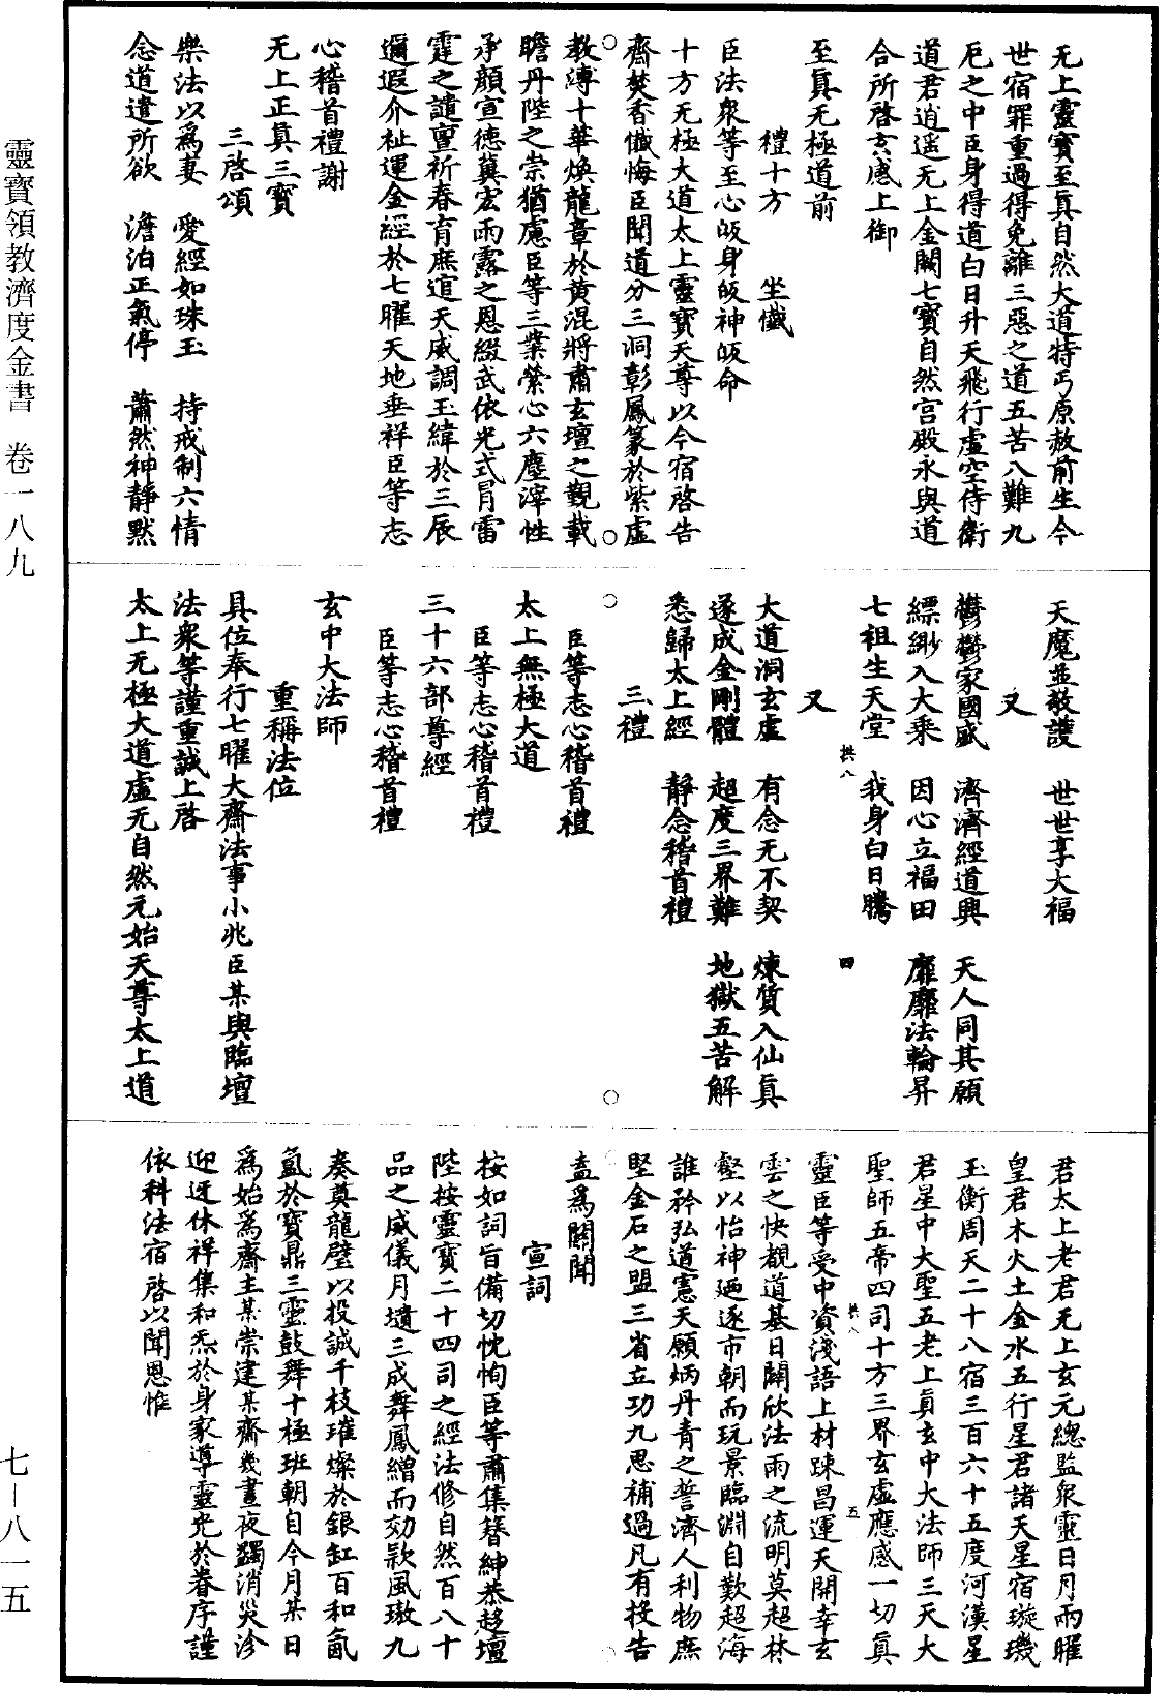 无上靈寶至真自然大道特丐原赦前生今
世宿罪重過得免離三惡之道五苦八難九
厄之中臣身得道白日升天飛行虛空侍衛
道君逍遥无上金闕七寶自然宮殿永與道
合所啓玄感上御
至真无極道前
禮十方　坐懺
臣法衆等至心皈身皈神皈命
十方无極大道太上靈寶天尊以今宿啓告
齋焚香懺悔臣聞道分三洞彰鳳篆於紫虛
教溥十華煥龍章於黃混將肅玄壇之覲載
瞻丹陛之崇猶慮臣等三業縈心六塵滓性
承顔宣德冀宏雨露之恩綴武依光式冐雷
霆之譴亶祈春育庶逭天威調玉緯於三辰
邇遐介祉運金經於七曜天地垂祥臣等志
心稽首禮謝
无上正真三寶
三啓頌
樂法以爲妻　愛經如珠玉　持戒制六情
念道遣所欲　澹泊正氣停　蕭然神靜默
天魔並敬護　世世享大福
又
鬱鬱家國盛　濟濟經道興　天人同其願
縹緲入大乗　因心立福田　靡靡法輪昇
七祖生天堂　我身白日騰
拱八　四
又
大道洞玄虛　有念无不契　煉質入仙真
遂成金剛體　超度三界難　地獄五苦解
悉歸太上經　靜念稽首禮
三禮
臣等志心稽首禮
太上無極大道
臣等志心稽首禮
三十六部尊經
臣等志心稽首禮
玄中大法師
重稱法位
具位奉行七曜大齋法事小兆臣某與臨壇
法衆等謹重誠上啓
太上无極大道虛无自然元始天尊太上道
君太上老君无上玄元總監衆靈日月兩曜
皇君木火土金水五行星君諸天星宿璇璣
玉衡周天二十八宿三百六十五度河漢星
君星中大聖五老上真玄中大法師三天大
聖師五帝四司十方三界玄虛應感一切真
拱八　五
靈臣等受中資淺語上材踈昌運天開幸玄
雲之快覩道基日闢欣法雨之流明莫超林
壑以怡神廼逐市朝而玩景臨淵自歎超海
誰矜弘道憲天願炳丹青之誓濟人利物庶
堅金石之盟三省立功九思補過凡有投告
盍爲關聞
宣詞
按如詞旨備切忱恂臣等肅集簪紳恭趍壇
陛按靈寶二十四司之經法修自然百八十
品之威儀月墳三成舞鳳繒而効欵風璈九
奏奠龍璧以投誠千枝璀燦於銀缸百和氤
氳於寶鼎三靈鼓舞十極班朝自今月某日
爲始爲齋主某崇建某齋幾晝夜蠲消災沴
迎迓休祥集和炁於身家導靈光於眷序謹
依科法宿啓以聞恩惟
靈寶領教濟度金書　卷一八九
七—八一五